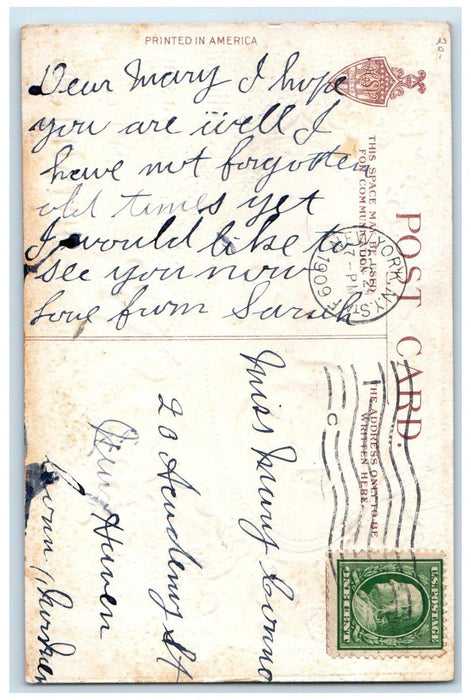 PRINTED IN AMERICA
Dear Mary I hope
you are well I
have not forgotten
old times yet
I would like to
see you now
Love from Sarah
POST CARD.
THIS SPACE MAY BE USED
FOR COMMUNICATION.
THE ADDRESS ONLY TO BE
WRITTEN HERE.
YORK, N.Y.
7-PM
1909
C
Miss Mary Conno
20 Academy St
New Haven
Conn
U.S. POSTAGE
ONE CENT